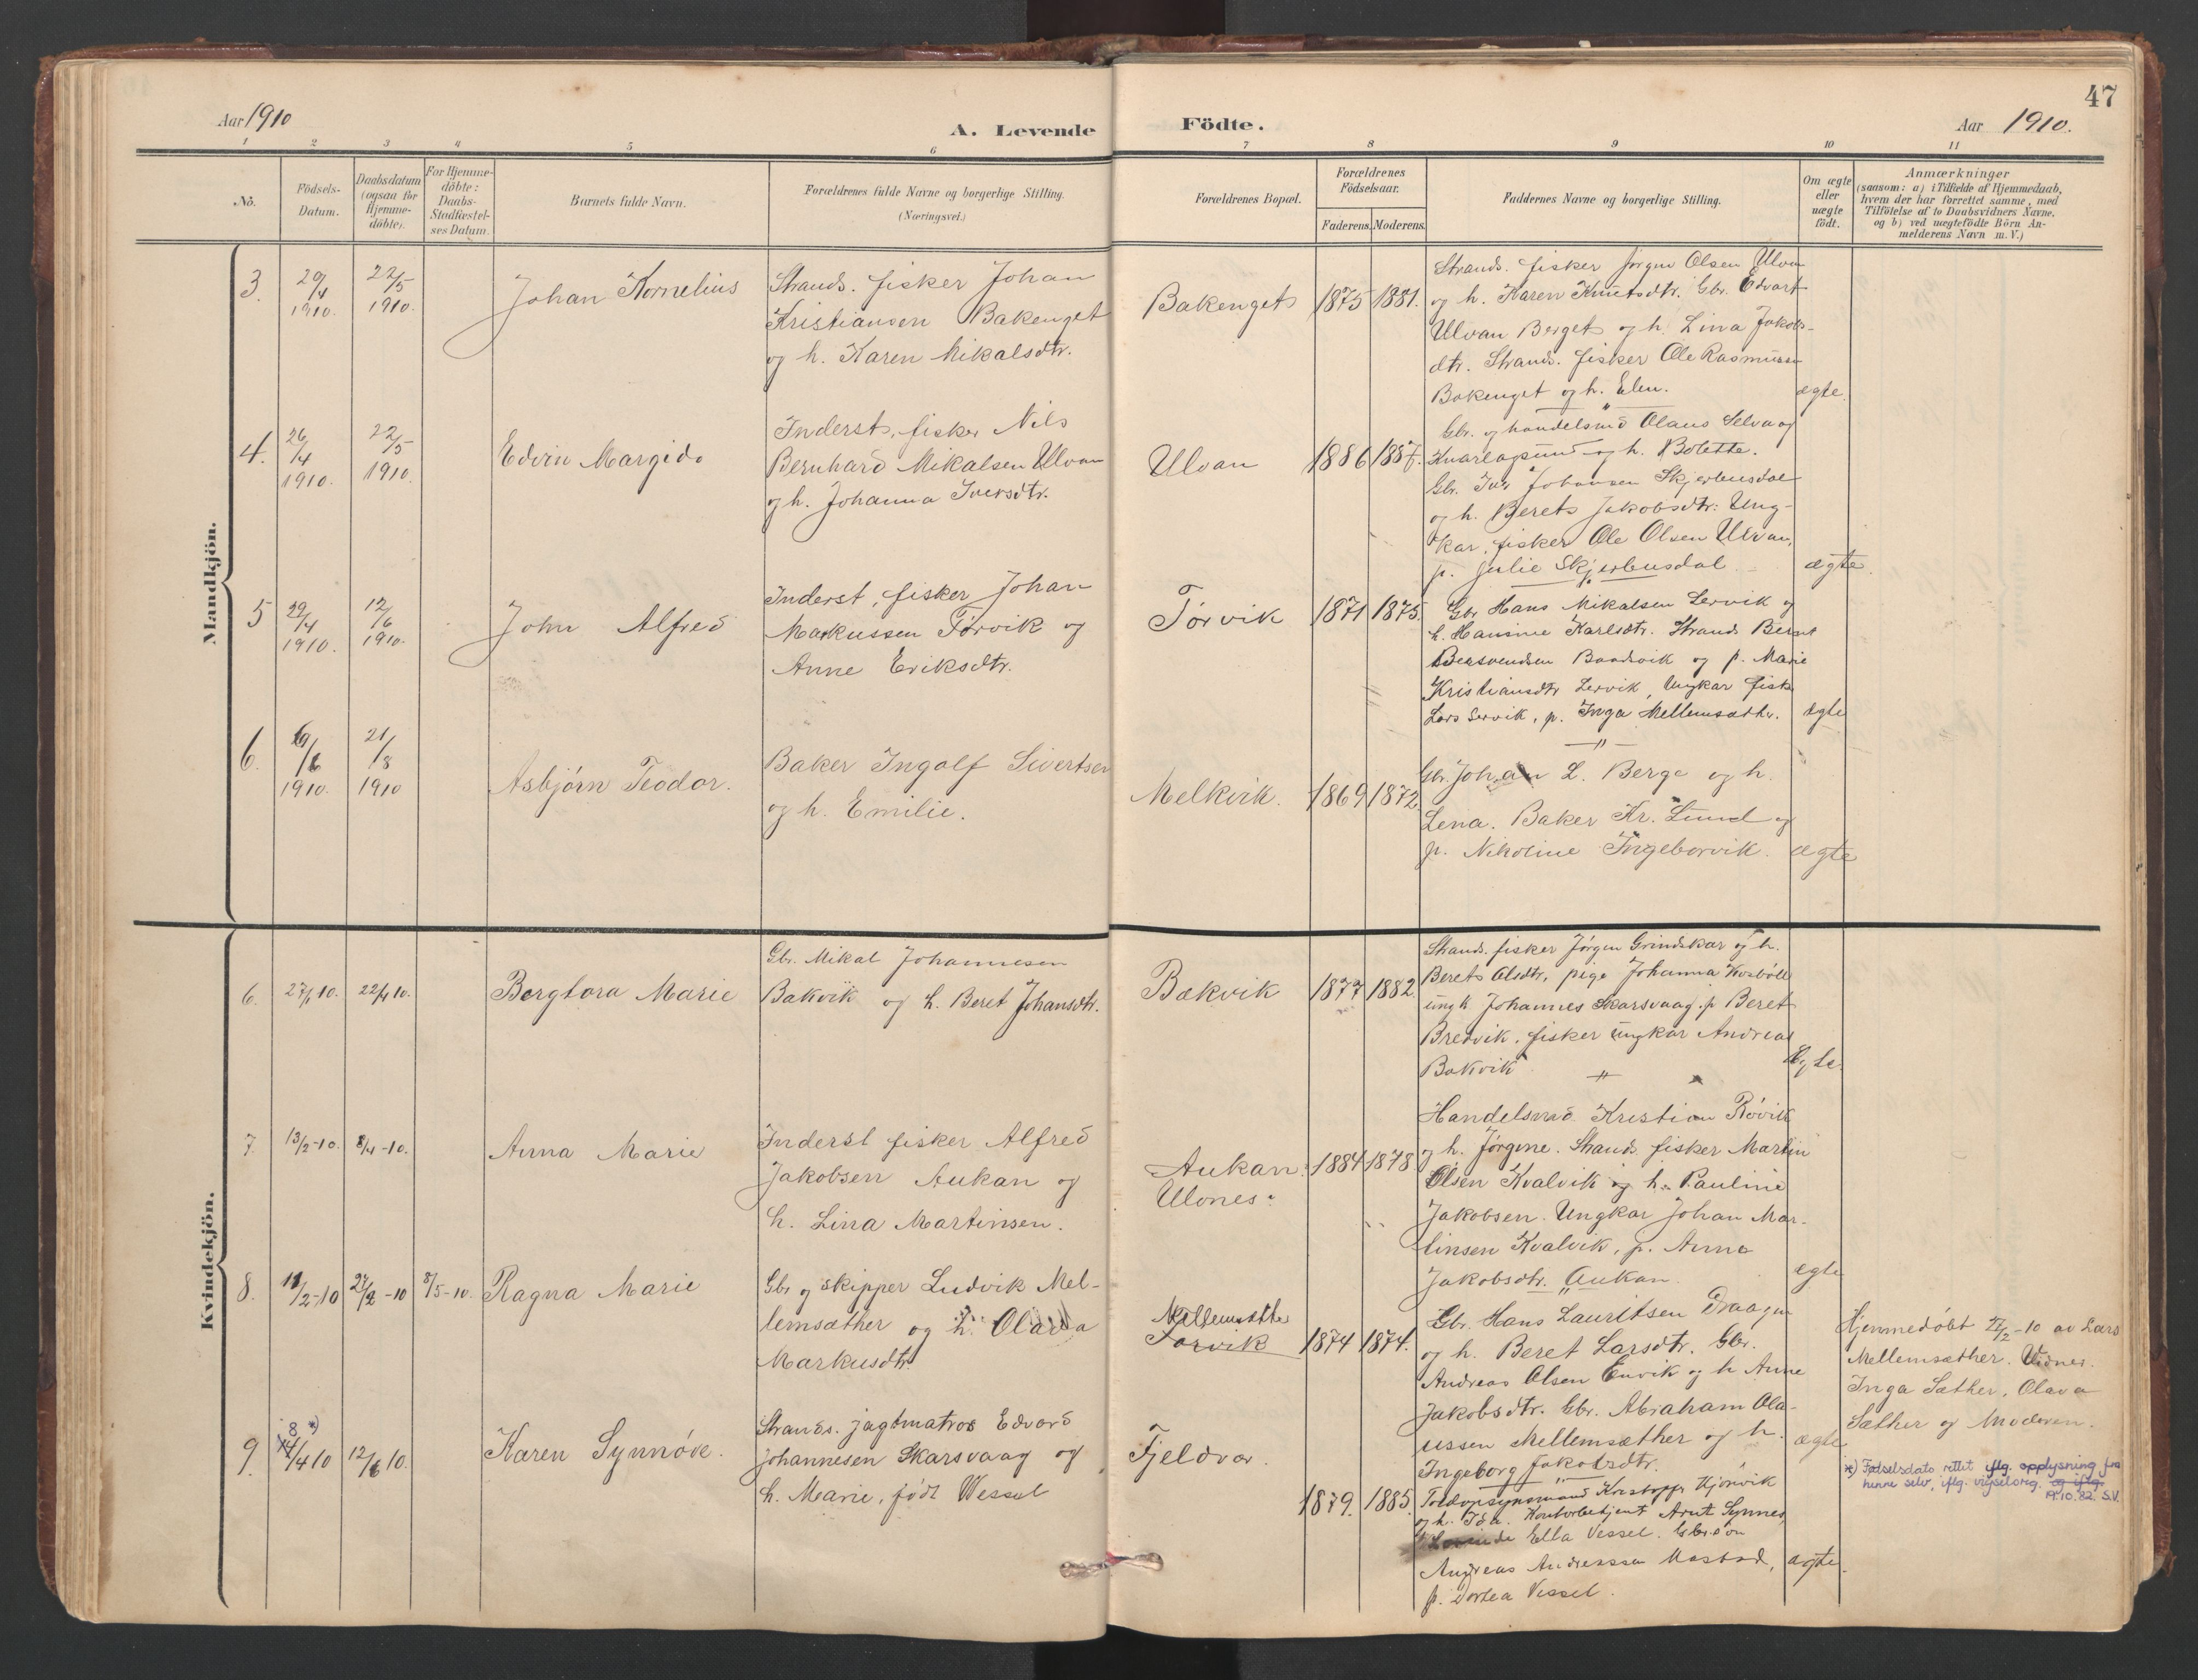 47
Aar 1910
A. Levende Födte.
Aar 1910.
1 2 3 4 5 6 7 8 9 10 11
No.
Födsels-
Datum.
Daabsdatum
(ogsaa for
Hjemme-
döbte).
For Hjemme-
döbte:
Daabs-
Stadfæstel-
ses Datum.
Barnets fulde Navn.
Forældrenes fulde Navne og borgerlige Stilling.
(Næringsvei.)
Forældrenes Bopæl.
Forældrenes
Födselsaar.
Faderens. Moderens.
Faddernes Navne og borgerlige Stilling.
Om ægte
eller
uægte
födt.
Anmærkninger
(saasom: a) i Tilfælde af Hjemmedaab,
hvem der har forrettet samme, med
Tilföielse af to Daabsvidners Navne,
og b) ved uægtefödte Börn An-
melderens Navn m. V.)
Mandkjön.
3.
29/4
1910.
22/5
1910.
Johan Kornelius
Strands. fisker Johan
Kristiansen Bakenget
og h. Karen Mikalsdtr.
Bakenget
1875 1881.
Strands. fisker Jørgen Olsen Ulvan
og h. Karen Knutsdtr. Gbr. Edvart
Ulvan Berget og h. Lina Jakobs-
dtr. Strands. fisker Ole Rasmussen
Bakenget og h. Elen.
ægte
4.
26/4
1910.
22/5
1910.
Edvin Margido
Inderst, fisker Nils
Bernhard Mikalsen Ulvan
og h. Johanna Iversdtr.
Ulvan
1886 1887.
Gbr. og handelsmd Olaus Selvaag
og h. Bolette.
Gbr. Iver Johansen Skjerbusdal
og h. Beret Jakobsdtr. Ung-
kar, fisker Ole Olsen Ulvan,
p. Julie Skjerbusdal
ægte.
5
29/4
1910.
12/6
1910.
John Alfred
Inderst, fisker Johan
Markussen Tørvik og
Anne Eriksdtr.
Tørvik
1871 1875.
Gbr. Hans Mikalsen Lervik og
h. Hansine Karlsdtr. Strands Bernt
Bersvendsen Baadsvik og p. Marie
Kristiansdtr Lervik, Ungkar fisk.
Lars Lervik, p. Inga Mellemsæther.
ægte
6.
19/6
1910.
21/8
1910
Asbjørn Teodor.
Baker Ingolf Sivertsen
og h. Emilie.
Melkvik.
1869 1872.
Gbr. Johan L. Berge og h.
Lena. Baker Kr. Lund og
p. Nikoline Ingeborvik.
ægte
Kvindekjön.
6.
27/1 10.
22/4 10.
Bergtora Marie
Gbr. Mikal Johannesen
Bakvik og h. Beret Johansdtr.
Bakvik
1877 1882
Strands. fisker Jørgen Grindskar og h.
Berets Olsdtr, pige Johanna
ungk Johannes Skarsvaag. p Beret
Bredvik, fisker ungkar Andreas
Bakvik
Ægte.
7.
13/2-10.
8/4-10.
Anna Marie
Inderst fisker Alfred
Jakobsen Aukan og
h. Lina Martinsen.
Aukan
Ulvnes.
1884 1878.
Handelsmd. Kristian Røvik
og h. Jørgine. Strands fisker Martin
Olsen Kvalvik og h. Pauline
Jakobsen. Ungkar Johan Mar-
tinsen Kvalvik, p. Anna
Jakobsdtr. Aukan.
ægte
8.
11/2-10
27/2-10
8/5-10.
Ragna Marie
Gbr og skipper Ludvik Mel-
lemsæther og h. Olava
Markusdtr
Mellemsæther
Tørvik
1874 1874.
Gbr. Hans Lauritsen Draagen
og h. Beret Larsdtr. Gbr.
Andreas Olsen Envik og h Anne
Jakobsdtr. Gbr. Abraham Ola-
ussen Mellemsæther og h.
Ingeborg Jakobsdtr.
ægte
Hjemmedøbt 27/2-10 av Lars
Mellemsæther. Vidner.
Inga Sæther, Olava
Sæther og Moderen.
9.
8 *)
14/4 10
12/6 10.
Karen Synnøve.
Strands. jagtmatros Edvard
Johannesen Skarsvaag og
h. Marie, født Wessel
Fjeldvær.
1879. 1885.
Toldopsynsmand Kristoffer
og h. Ida. Kontorbetjent Arnt Synnes,
Ella Vessel. Gbr.søn
Andreas Andreassen Mostad,
p. Dortea Vessel.
ægte.
*) Fødselsdato rettet iflg. opplysning fra
henne selv, iflg. vigselorg. og iflg.
19.10.82. S.V.